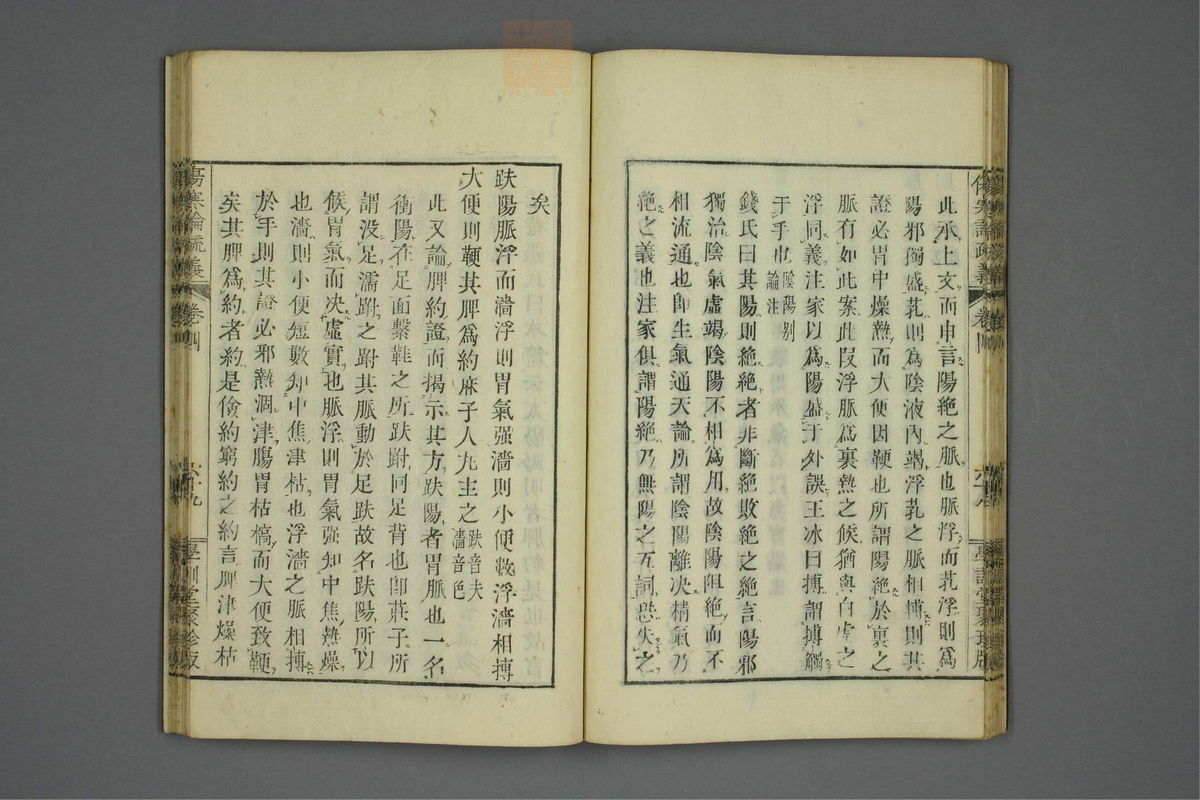 此承上文而申言陽絶之脈也脈浮而芤浮則爲
陽邪獨盛芤則爲陰液內竭浮芤之脈相搏則其
證必胃中燥熱而大便因鞕也所謂陽絶於裏之
脈有如此案此叚浮脈爲裏熱之候猶與白虎之
浮同義注家以爲陽盛于外誤王冰曰搏謂搏觸
于手也陰陽别
論注
錢氏曰其陽則絶絶者非斷絶敗絶之絶言陽邪
獨治陰氣虛竭陰陽不相爲用故陰陽阻絶而不
相流通也即生氣通天論所謂陰陽離决精氣乃
絶之義也注家俱謂陽絶乃無陽之互詞恐失之
矣
趺陽脈浮而濇浮則胃氣强濇則小便數浮濇相搏
大便則鞕其脾爲約麻子人丸主之趺音夫
濇音色
此又論脾約證而揭示其方趺陽者胃脈也一名
衝陽在足面繫鞋之所趺跗同足背也即莊子所
謂沒足濡跗之跗其脈動於足趺故名趺陽所以
候胃氣而决虛實也脈浮則胃氣强知中焦熱燥
也濇則小便短數知中焦津枯也浮濇之脈相搏
於手則其證必邪熱涸津膓胃枯槁而大便致鞕
矣其脾爲約者約是儉約窮約之約言脾津燥枯
傷寒論疏義
卷四
六十八
學訓堂聚珍版
傷寒論疏義
卷四
六十九
學訓堂聚珍版